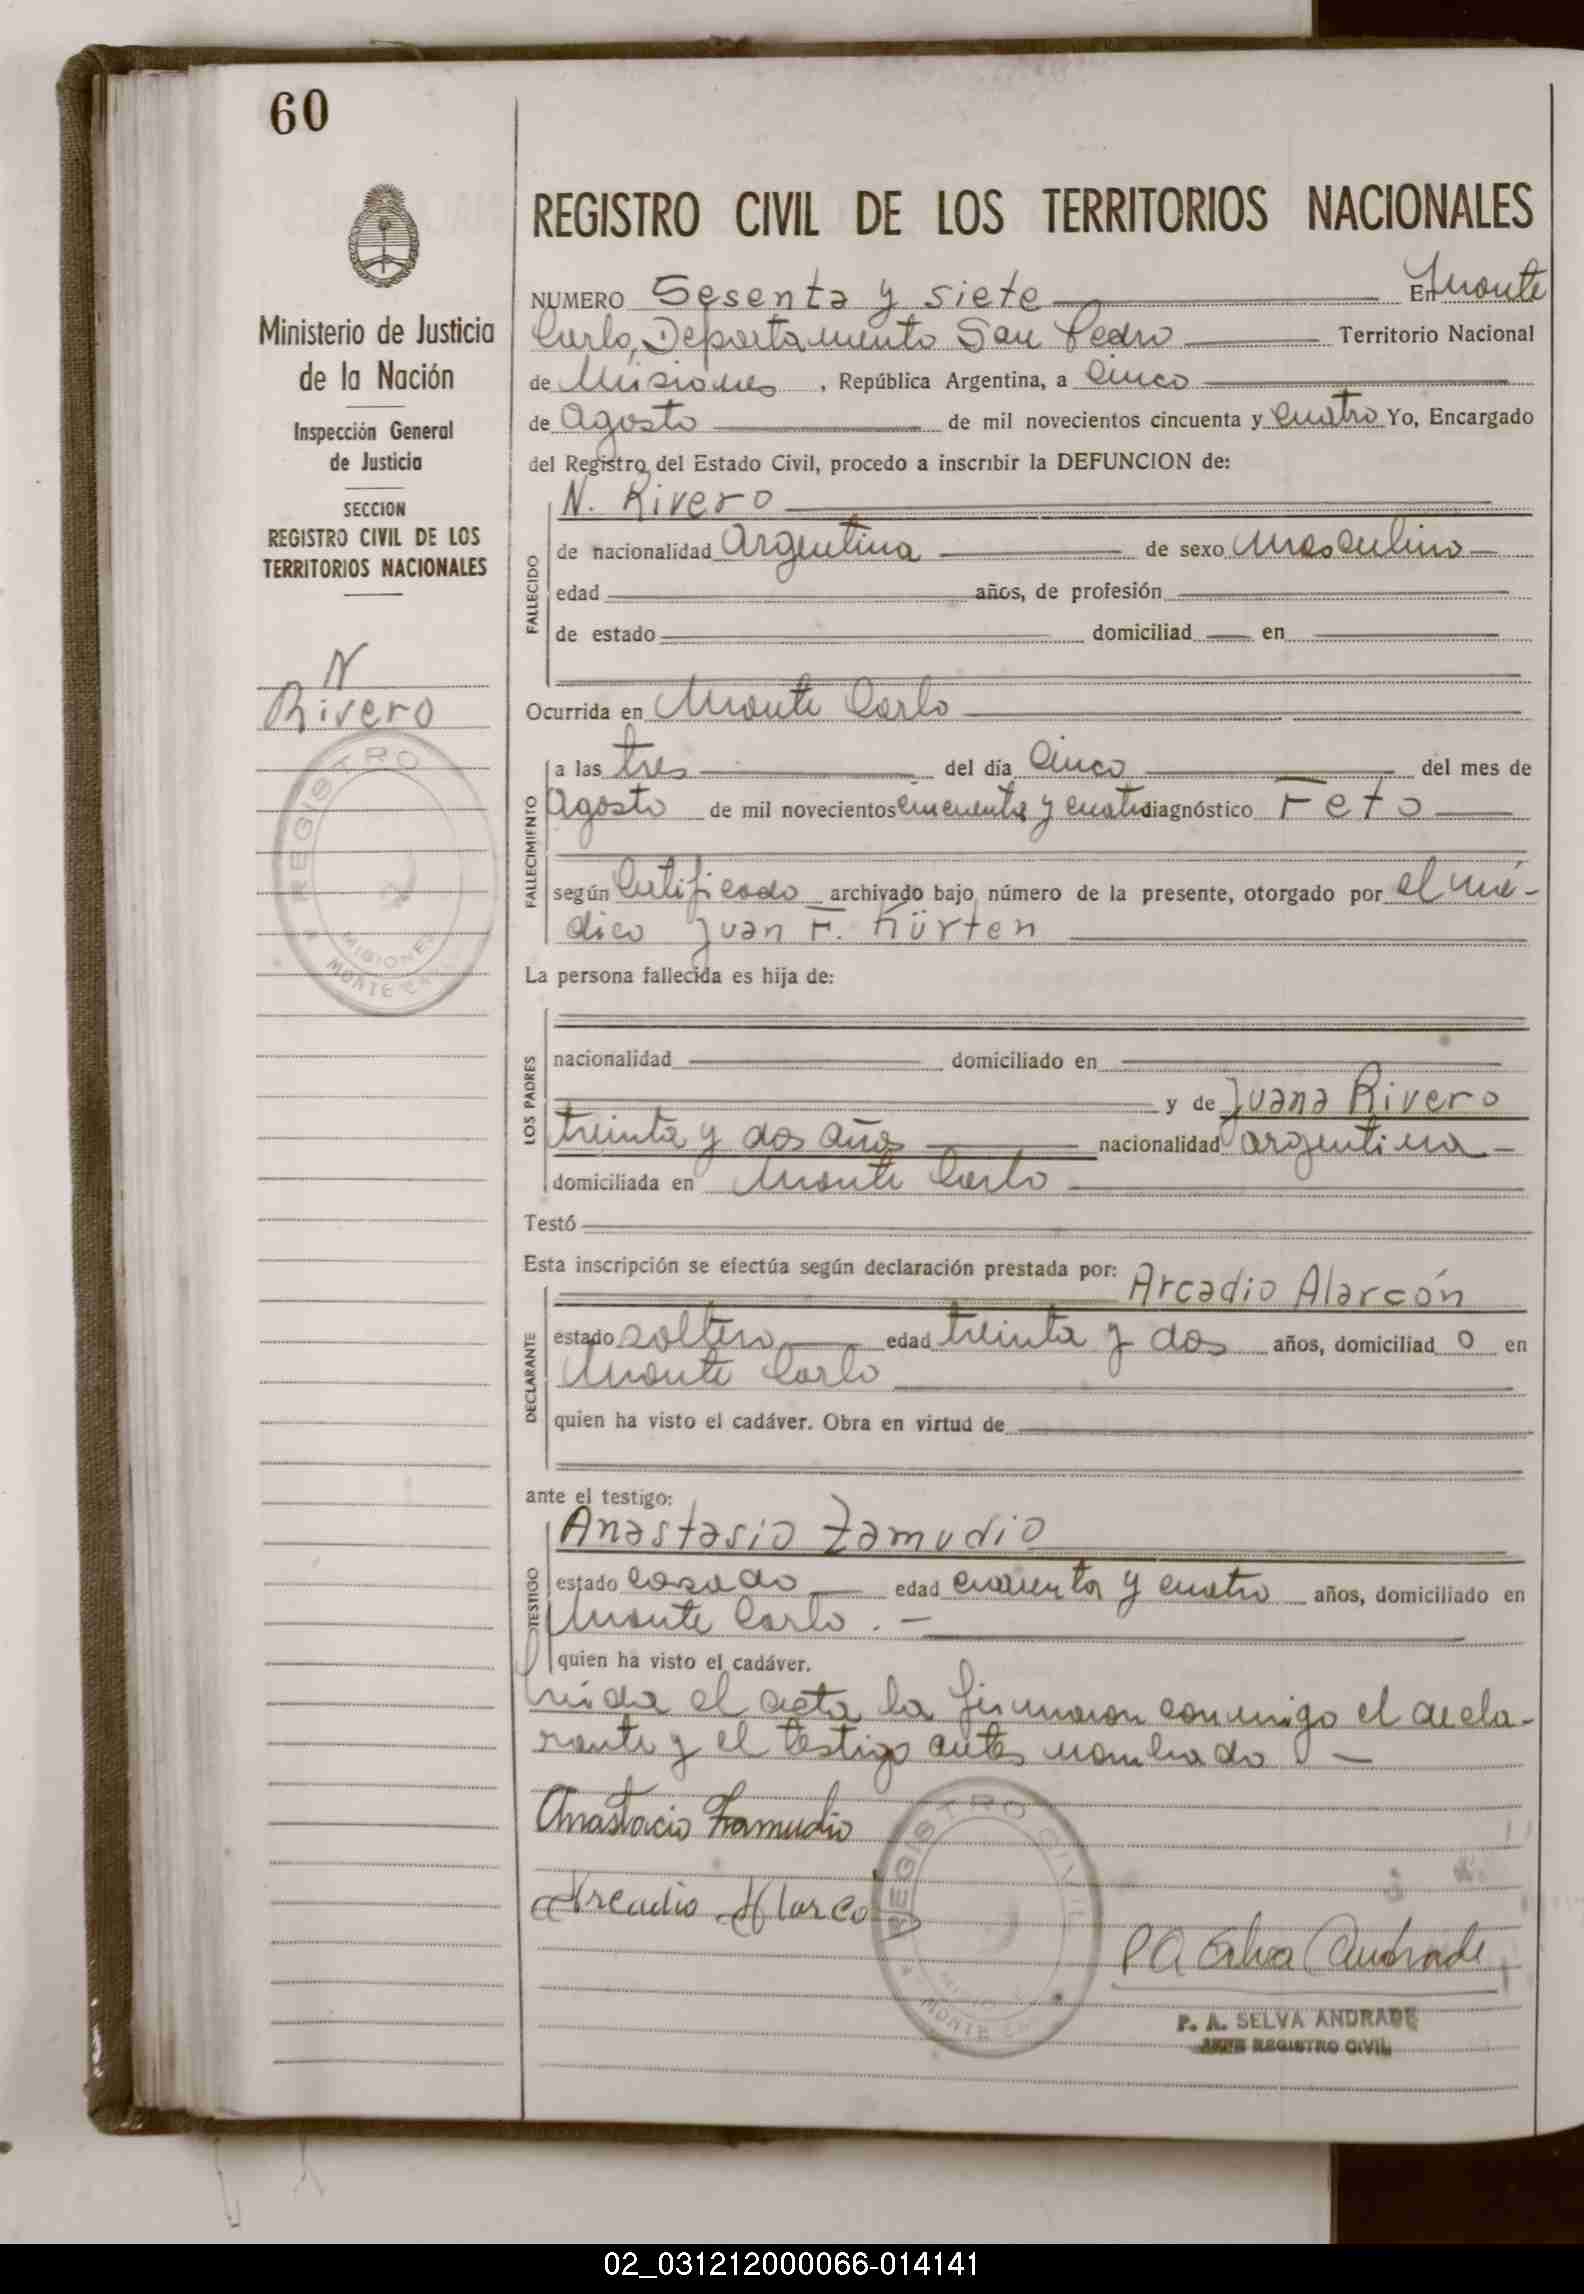 60
Ministerio de Justicia
de la Nación
Inspección General
de Justicia
SECCION
REGISTRO CIVIL DE LOS
TERRITORIOS NACIONALES
N
Rivero
REGISTRO
MISIONES
MONTE CA
REGISTRO CIVIL DE LOS TERRITORIOS NACIONALES
NUMERO Sesenta y siete En Monte
Carlo, Departamento San Pedro Territorio Nacional
de Misiones, República Argentina, a Cinco
de Agosto de mil novecientos cincuenta y cuatro Yo, Encargado
del Registro del Estado Civil, procedo a inscribir la DEFUNCION de:
N. Rivero
FALLECIDO
de nacionalidad Argentina de sexo Masculino
edad años, de profesión
de estado domiciliad en
Ocurrida en Monte Carlo
FALLECIMIENTO
a las tres del día Cinco del mes de
Agosto de mil novecientos cincuenta y cuatro diagnóstico Feto
según Certificado archivado bajo número de la presente, otorgado por el mé-
dico Juan F. Kürten
La persona fallecida es hija de:
LOS PADRES
nacionalidad domiciliado en
y de Juana Rivero
treinta y dos años nacionalidad argentina
domiciliada en Monte Carlo
Testó
Esta inscripción se efectúa según declaración prestada por:
Arcadio Alarcón
DECLARANTE
estado soltero edad treinta y dos años, domiciliad o en
Monte Carlo
quien ha visto el cadáver. Obra en virtud de
ante el testigo:
Anastasio Zamudio
TESTIGO
estado casado edad cuarenta y cuatro años, domiciliado en
Monte Carlo.
quien ha visto el cadáver.
Leída el acta la firmaron conmigo el decla-
rante y el testigo antes nombrado
Anastacio Zamudio
Arcadio Alarcon
REGISTRO CIVIL
MONTE CA
P A Selva Andrade
P. A. SELVA ANDRADE
JEFE REGISTRO CIVIL
02_031212000066-014141